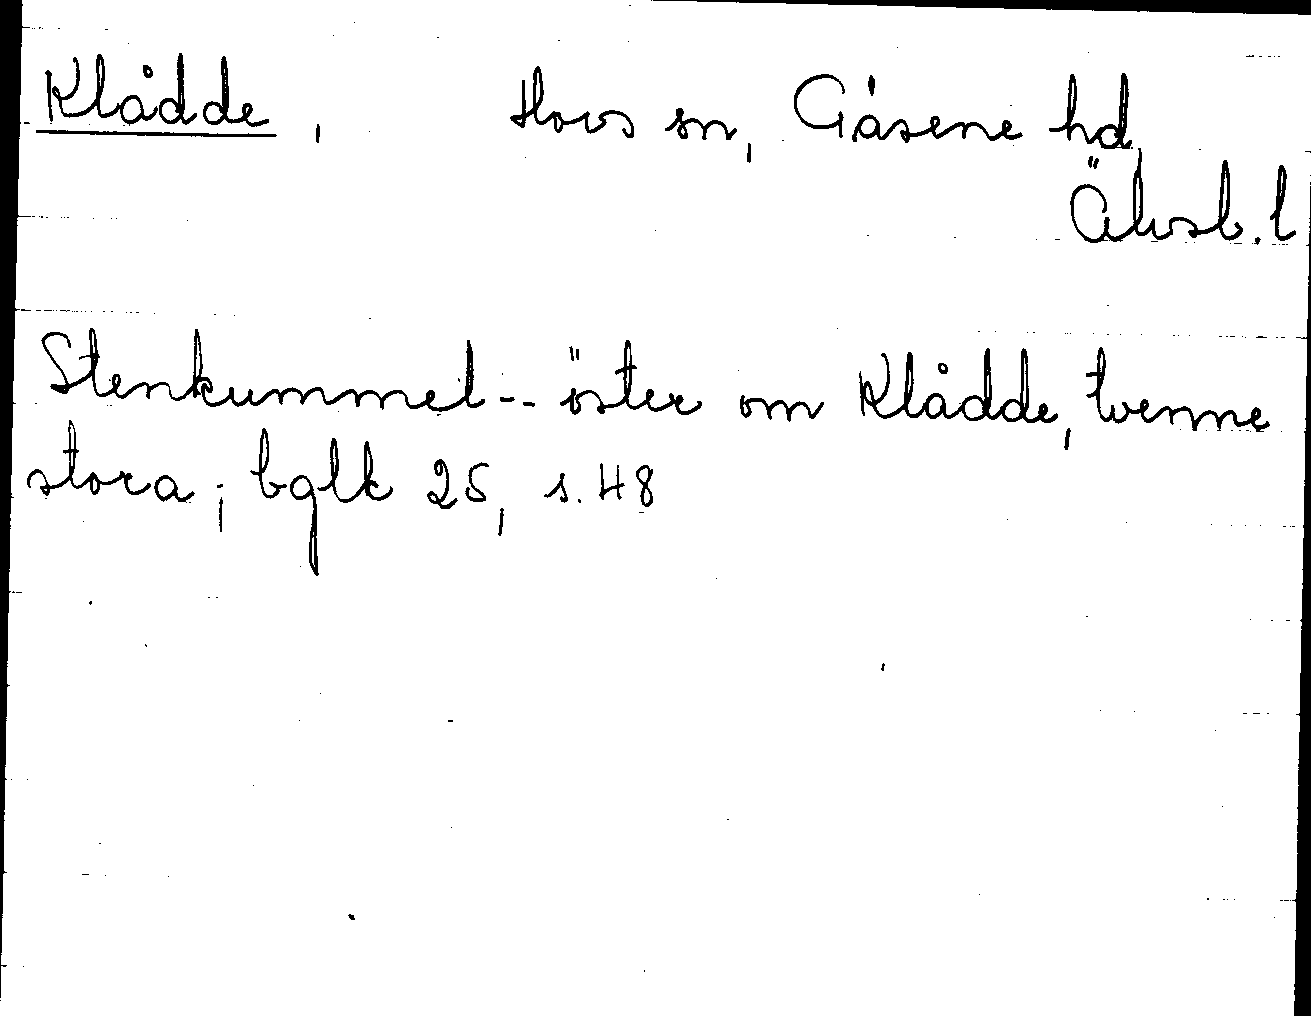 Klådde, Hovs sn, Gäsene hd,
Älvsb. l
Stenkummel-- öster om Klådde, tvenne
stora; bglk 25, s. 48